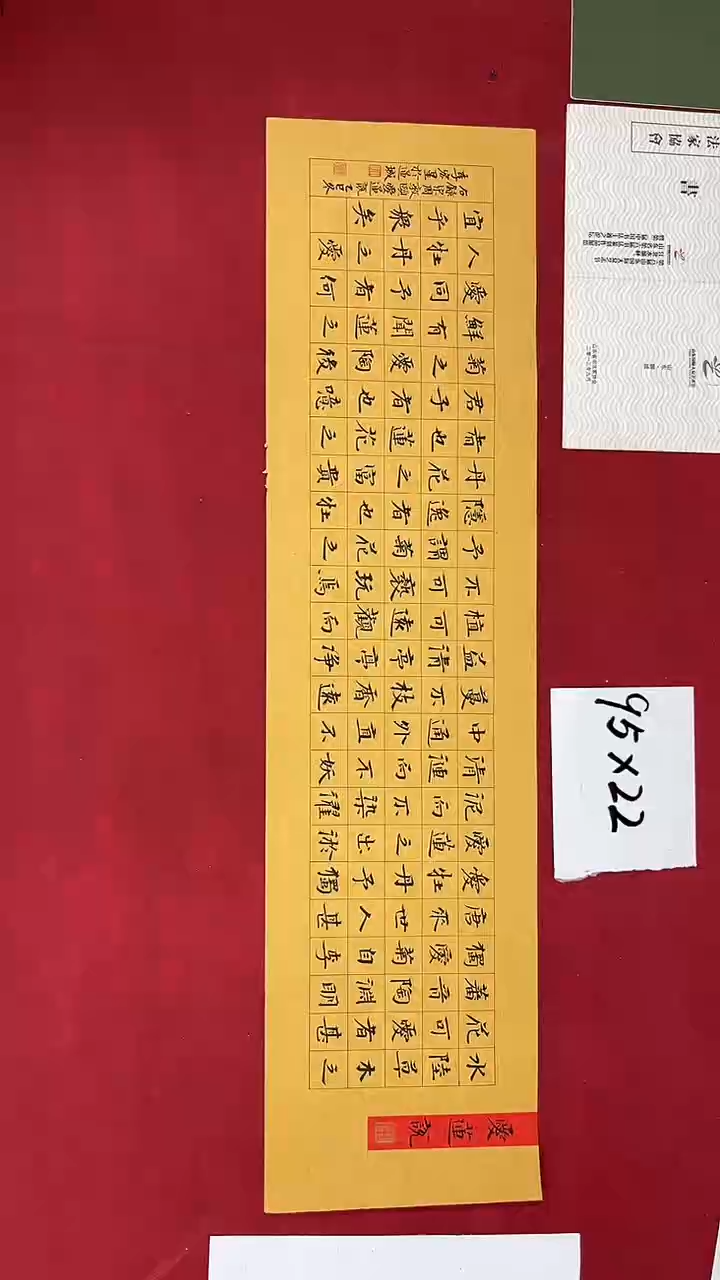 愛蓮說
水陸草木之
花可愛者甚
蕃晉陶淵明
獨愛菊自李
唐來世人甚
愛牡丹予獨
愛蓮之出淤
泥而不染濯
清漣而不妖
中通外直不
蔓不枝香遠
益清亭亭淨
植可遠觀而
不可褻玩焉
予謂菊花之
隱逸者也牡
丹花之富貴
者也蓮花之
君子者也噫
菊之愛陶後
鮮有聞蓮之
愛同予者何
人牡丹之愛
宜乎般矣
右錄宋周敦頤愛蓮說乙巳冬
95×22
法家協會
書